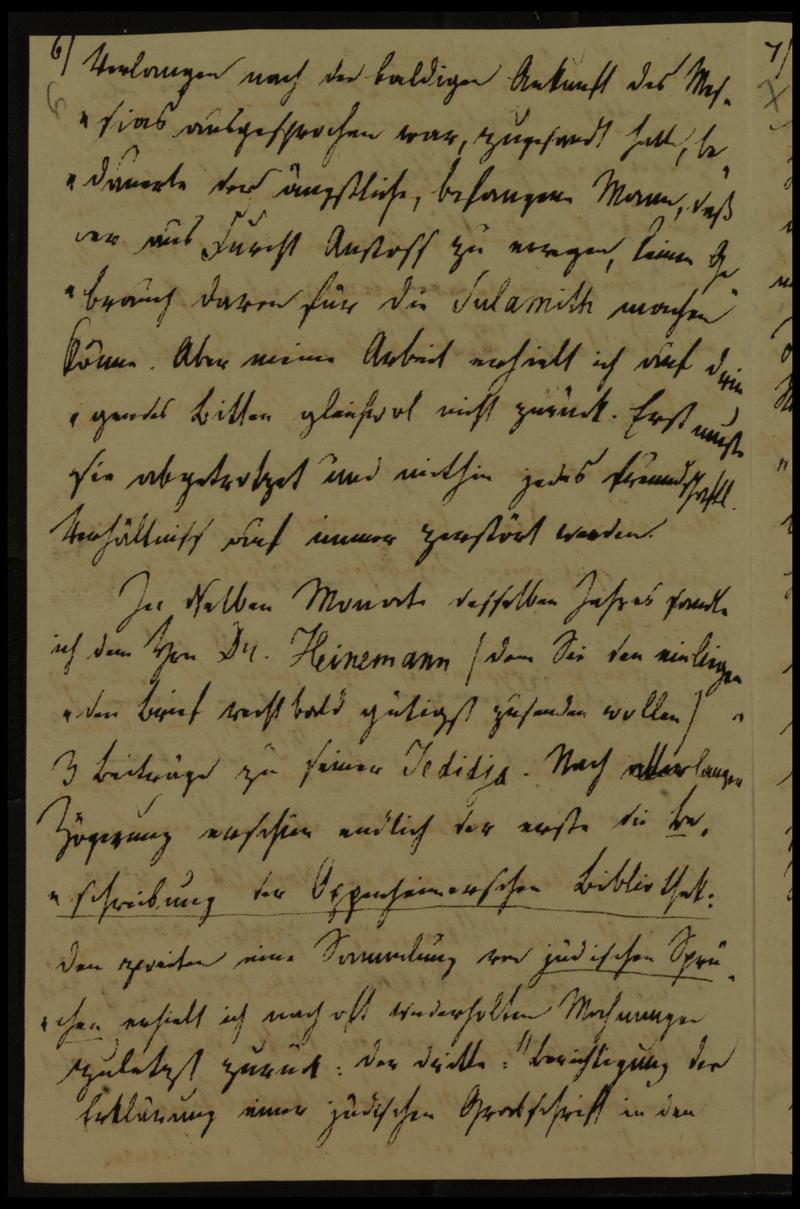 6)
Verlangen nach der baldigen Ankunft des Mes-
"sias ausgesprochen war, zugesandt hatte, be-
"dauerte der ängstliche, befangene Mann, daß
er aus Furcht Anstoss zu erregen, keinen Ge-
"brauch davon für die Sulamith machen
könne. Aber meine Arbeit erhielt ich auf drin
"gendes Bitten gleichwol nicht zurück. Erst musste
sie abgetrotzet und mithin jedes freundschaftl.
Verhältniss auf immer zerstört werden.
In dselben Monate desselben Jahres sandte
ich dem Hrn Dr. Heinemann (dem Sie den einliegen
"den Brief recht bald gütigst zusenden wollen)
3 Beiträge zu seiner Jedidja. Nach langer
Zögerung erschien endlich der erste die Be-
"schreibung der Oppenheimerschen Bibliothek:
den zweiten eine Sammlung von jüdischen Sprü-
"chen erhielt ich nach oft wiederholten Mahnungen
zuletzt zurück: der dritte: "Berichtigung der
Erklärung einer jüdischen Grabschrift in den
7)